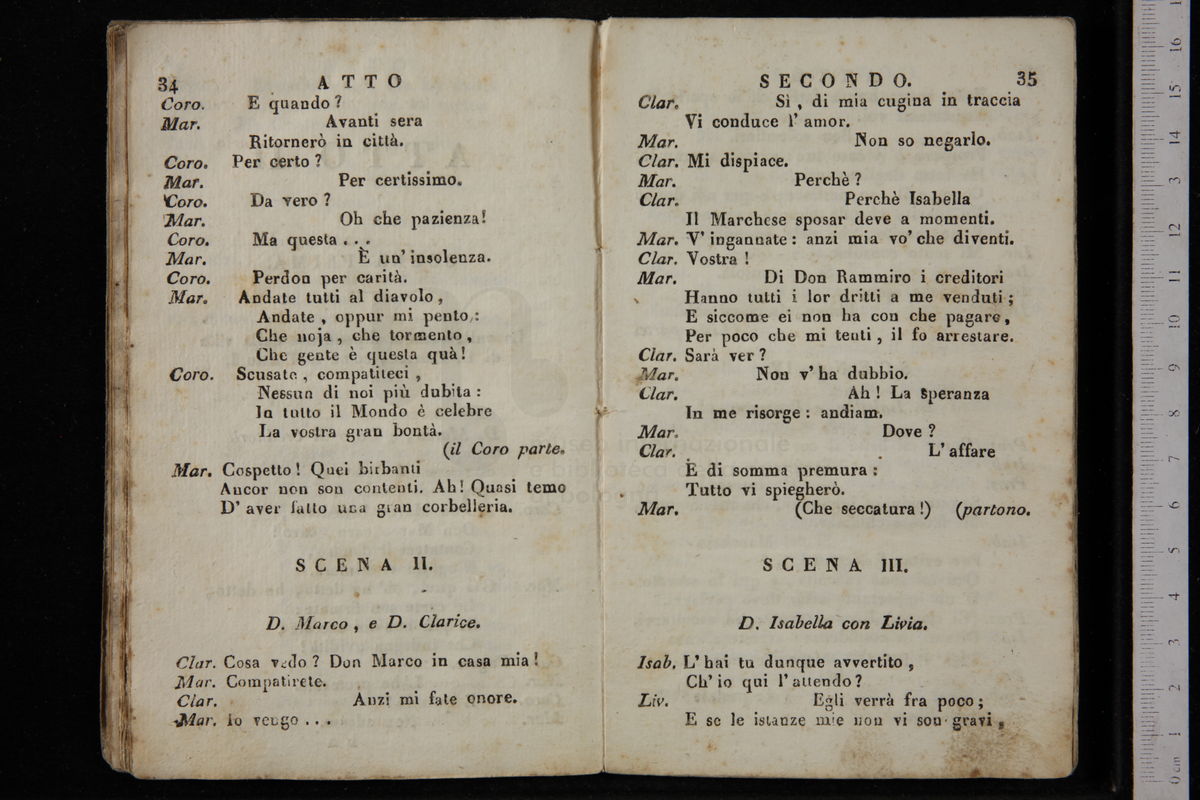 34 ATTO
Coro. E quando?
Mar. Avanti sera
Ritornerò in città.
Coro. Per certo?
Mar. Per certissimo.
Coro. Da vero?
Mar. Oh che pazienza!
Coro. Ma questa . . .
Mar. È un' insolenza.
Coro. Perdon per carità.
Mar. Andate tutti al diavolo,
Andate, oppur mi pento:
Che noja, che tormento,
Che gente è questa quà!
Coro. Scusate, compatiteci,
Nessun di noi più dubita:
In tutto il Mondo è celebre
La vostra gran bontà.
(il Coro parte.
Mar. Cospetto! Quei birbanti
Ancor non son contenti. Ah! Quasi temo
D' aver fatto una gran corbelleria.
SCENA II.
D. Marco, e D. Clarice.
Clar. Cosa vedo? Don Marco in casa mia!
Mar. Compatirete.
Clar. Anzi mi fate onore.
Mar. Io vengo . . .
SECONDO. 35
Clar. Sì, di mia cugina in traccia
Vi conduce l' amor.
Mar. Non so negarlo.
Clar. Mi dispiace.
Mar. Perchè?
Clar. Perchè Isabella
Il Marchese sposar deve a momenti.
Mar. V' ingannate: anzi mia vo' che diventi.
Clar. Vostra!
Mar. Di Don Rammiro i creditori
Hanno tutti i lor dritti a me venduti;
E siccome ei non ha con che pagare,
Per poco che mi tenti, il fo arrestare.
Clar. Sarà ver?
Mar. Non v' ha dubbio.
Clar. Ah! La Speranza
In me risorge: andiam.
Mar. Dove?
Clar. L' affare
È di somma premura:
Tutto vi spiegherò.
Mar. (Che seccatura!) (partono.
SCENA III.
D. Isabella con Livia.
Isab. L' hai tu dunque avvertito,
Ch' io qui l' attendo?
Liv. Egli verrà fra poco;
E se le istanze mie non vi son gravi,